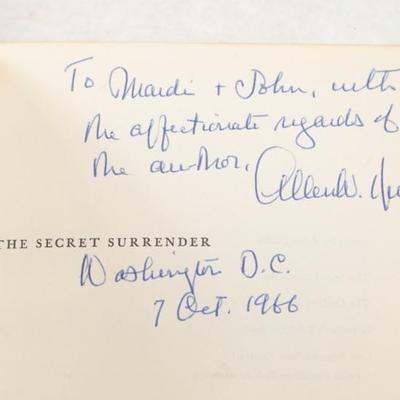 To Mardi + John, with
the affectionate regards of
the author, Allen W.
THE SECRET SURRENDER
Washington D.C.
7 Oct. 1966